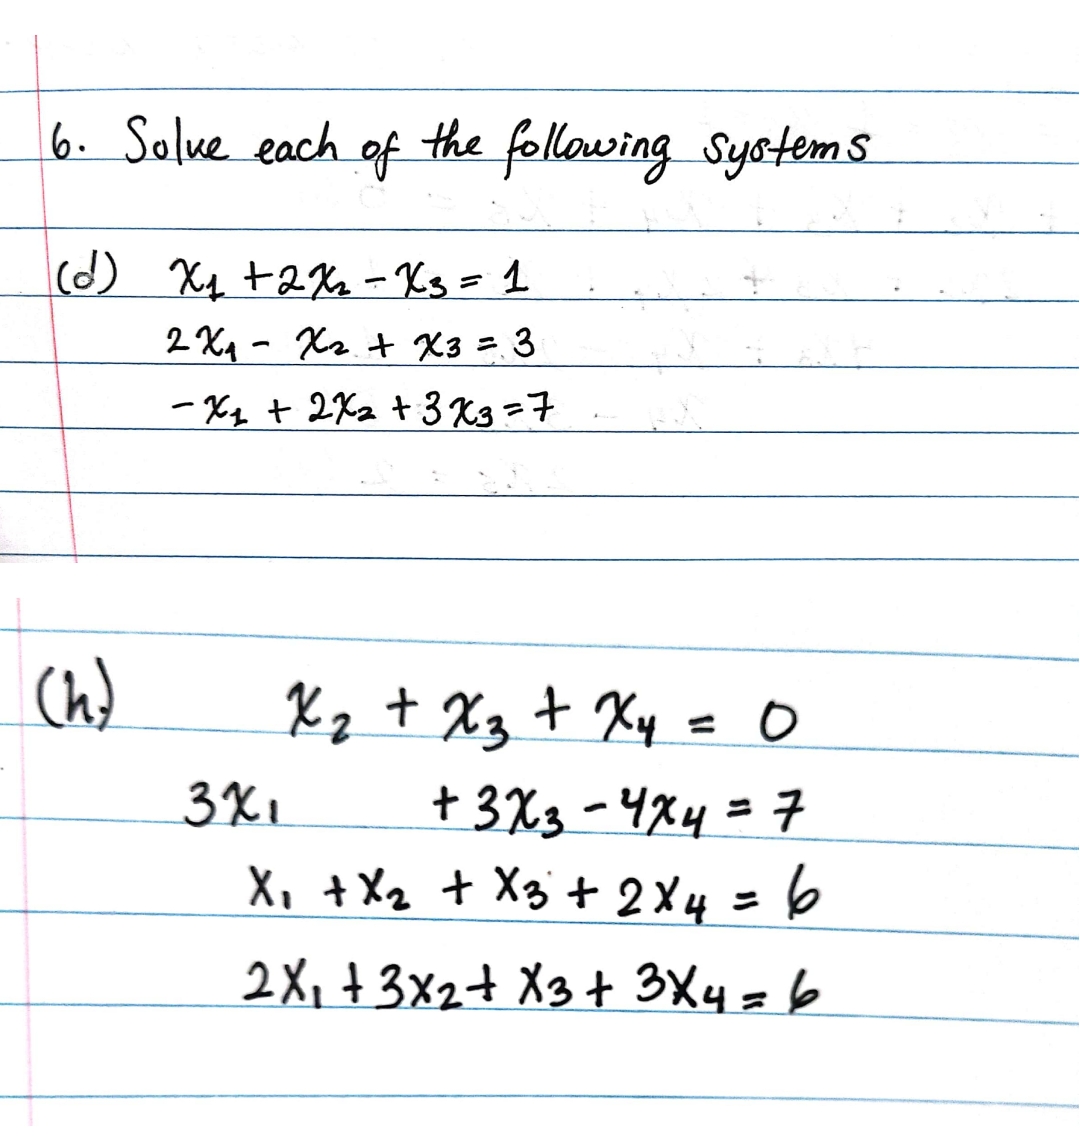 6. Solve each of the following systems
(d) x₁ + 2x₂ - x₃ = 1
2x₁ - x₂ + x₃ = 3
-x₁ + 2x₂ + 3x₃ = 7
(h) x₂ + x₃ + x₄ = 0
3x₁ + 3x₃ - 4x₄ = 7
x₁ + x₂ + x₃ + 2x₄ = 6
2x₁ + 3x₂ + x₃ + 3x₄ = 6